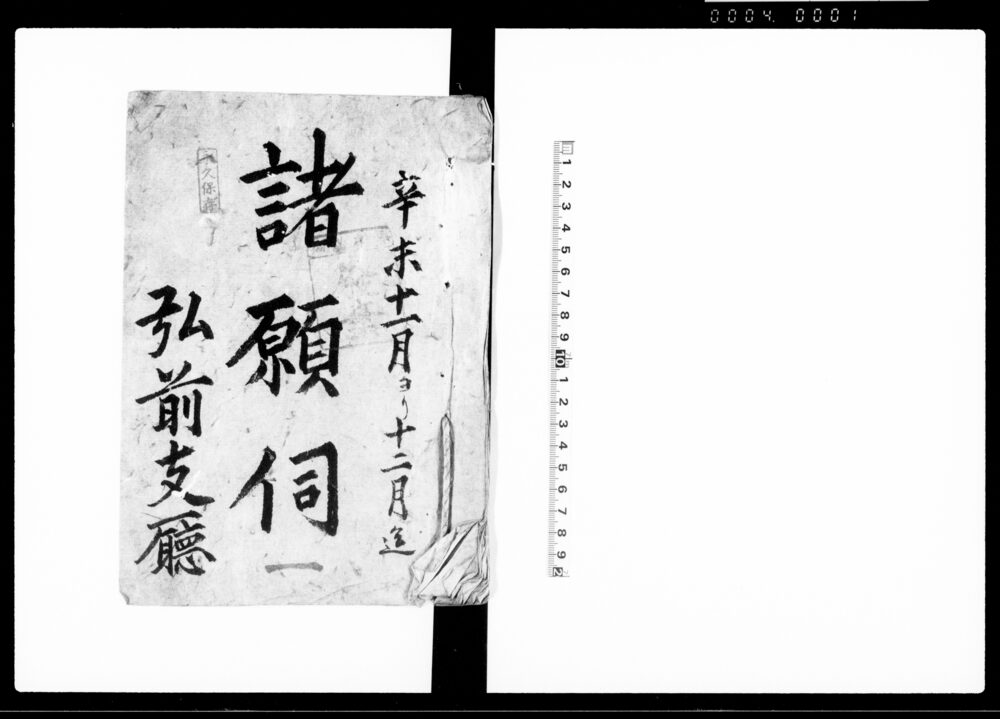 0004 0001
辛未十一月ヨリ十二月迄
諸願伺
一
弘前支廳
永久保存
1 2 3 4 5 6 7 8 9 10 1 2 3 4 5 6 7 8 9 2